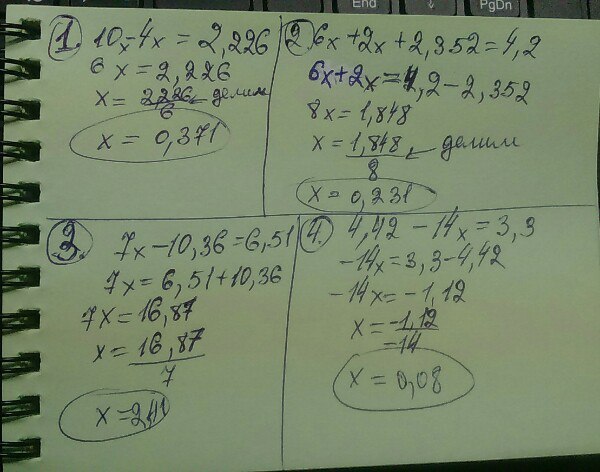 End
PgDn
1. 10x-4x = 2,226
6x = 2,226
x = 2,226 ← делим
6
x = 0,371
2. 6x+2x+2,352=4,2
6x+2x=4,2-2,352
8x=1,848
x = 1,848 ← делим
8
x = 0,231
3. 7x-10,36=6,51
7x=6,51+10,36
7x=16,87
x = 16,87
7
x=2,41
4. 4,42-14x=3,3
-14x=3,3-4,42
-14x=-1,12
x = -1,12
-14
x = 0,08